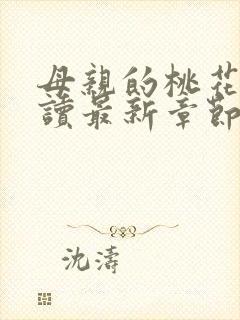 母親的桃花
讀最新章節
沈濤